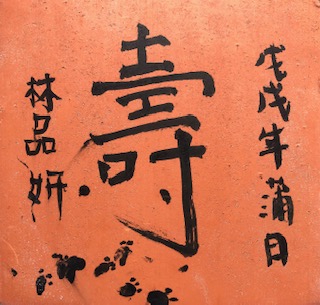 戊戌年蒲日
壽
林品妍